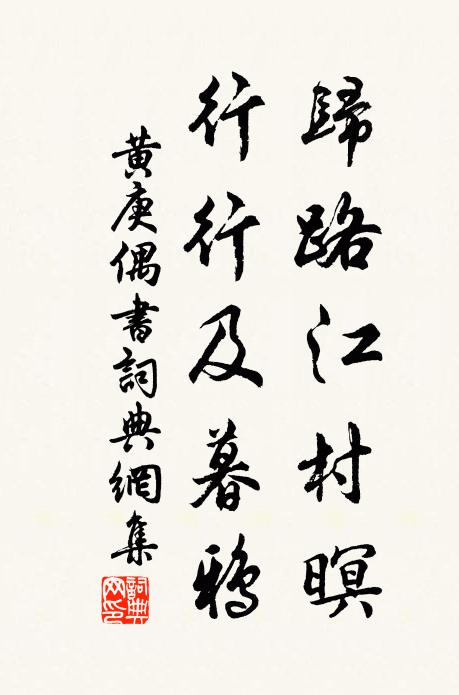 歸路江村暝
行行及暮鴉
黃庚偶書詞典網集
詞典网印